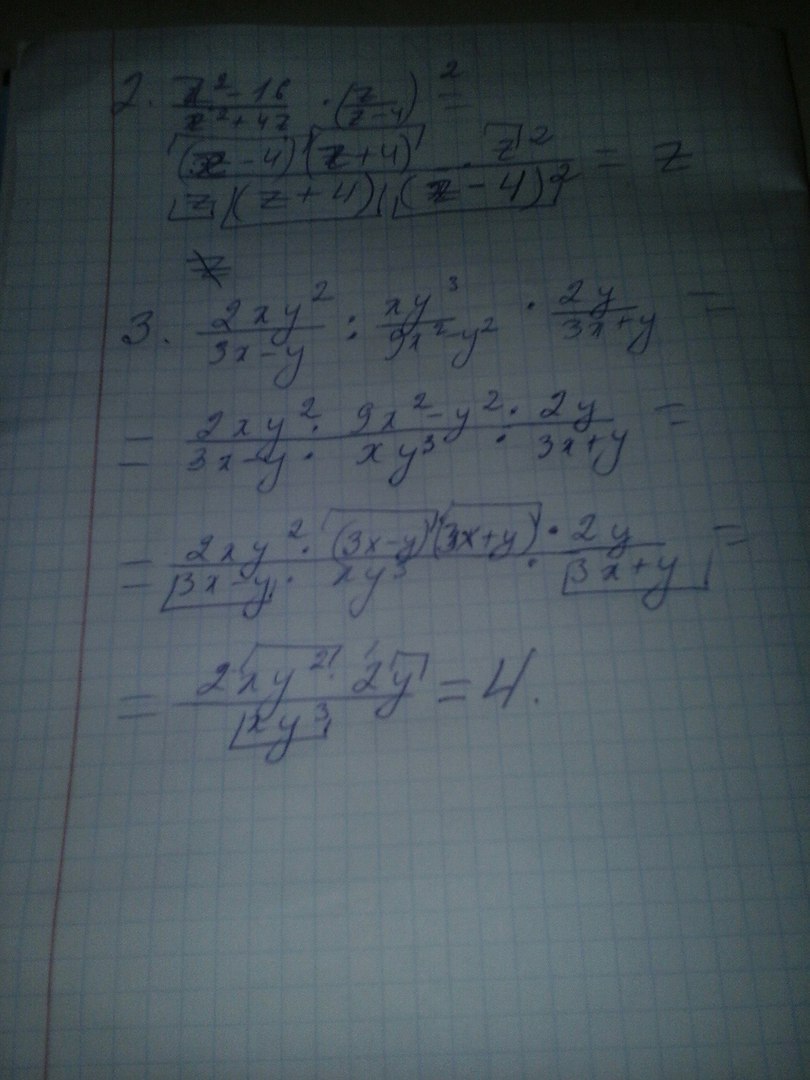 2. (z² - 16)/(z² + 4z) · (z/(z - 4))² =
((z - 4)(z + 4) · z²)/(z (z + 4) (z - 4)²) = z
3. (2xy²)/(3x - y) : (xy³)/(9x² - y²) · (2y)/(3x + y) =
= (2xy² · 9x² - y² · 2y)/(3x - y · xy³ · 3x + y) =
= (2xy² · (3x - y)(3x + y) · 2y)/(3x - y · xy³ · 3x + y) =
= (2xy² · 2y)/(xy³) = 4.